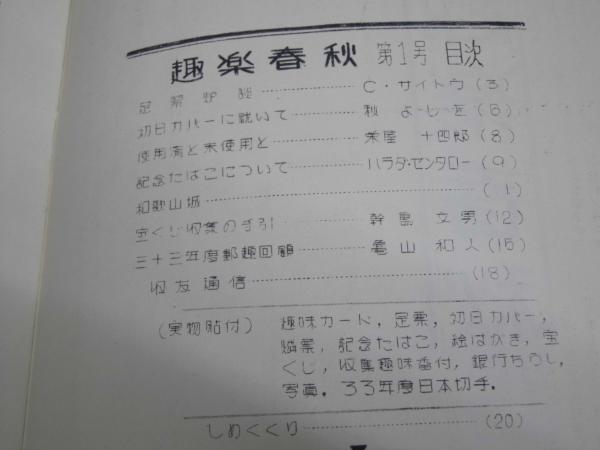 趣楽春秋 第1号 目次
C・サイトウ(3)
初日カバーに就いて 秋 よしを(5)
使用済と未使用と 栄屋 十四郎(8)
記念たばこについて ハラダ・ゼンタロー(9)
和歌山城 (11)
宝くじ収集の手引 幹島 文男(12)
三十三年度郵趣回顧 亀山 和人(15)
収友通信 (18)
(実物貼付) 趣味カード,定票,初日カバー,
燐票,記念たばこ,絵はがき,宝
くじ,収集趣味番付,銀行ちらし,
写真.33年度日本切手.
しめくくり (20)